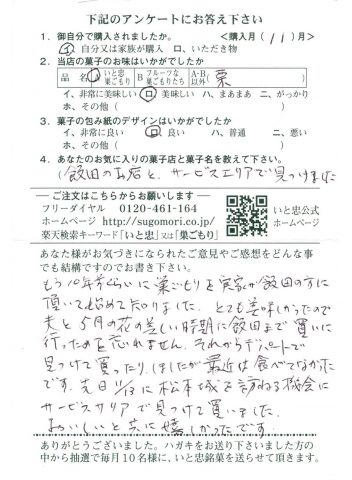 下記のアンケートにお答え下さい
1. 御自分で購入されましたか。 <購入月(11)月>
イ、自分又は家族が購入 ロ、いただき物
2. 当店の菓子のお味はいかがでしたか
品名 A いと忠巣ごもり B フルーツな巣ごもりたち A・B以外( 栗 )
イ、非常に美味しい ロ、美味しい ハ、まあまあ ニ、がっかり
ホ、その他( )
3. 菓子の包み紙のデザインはいかがでしたか
イ、非常に良い ロ、良い ハ、普通 ニ、悪い
ホ、その他( )
4. あなたのお気に入りの菓子店と菓子名を教えて下さい。
(飯田のお店と、サービスエリアで見つけました
ご注文はこちらからお願いします
フリーダイヤル 0120-461-164
ホームページ http://sugomori.co.jp/
楽天検索キーワード「いと忠」又は「巣ごもり」
いと忠公式
ホームページ
あなた様がお気づきになられたご意見やご感想をどんな事
でも結構ですのでお書き下さい。
もう10年ぐらいに巣ごもりを実家が飯田の方に
頂いて始めて知りました。とても美味しかったので
夫と5月の花の美しい時期に飯田まで買いに
行ったのを忘れません。それからデパートで
見つけて買ったりしましたが最近は食べてなかった
です。先日11/13に松本城を訪ねる機会に
サービスエリアで見つけて買いました。
おいしいと共に嬉しかったです。
ありがとうございました。ハガキをお送り下さいました方の
中から抽選で毎月10名様に、いと忠銘菓を送らせて頂きます。